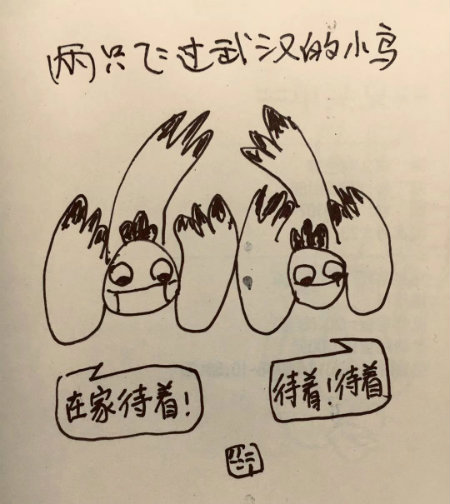 两只飞过武汉的小鸟
在家待着！
待着！待着